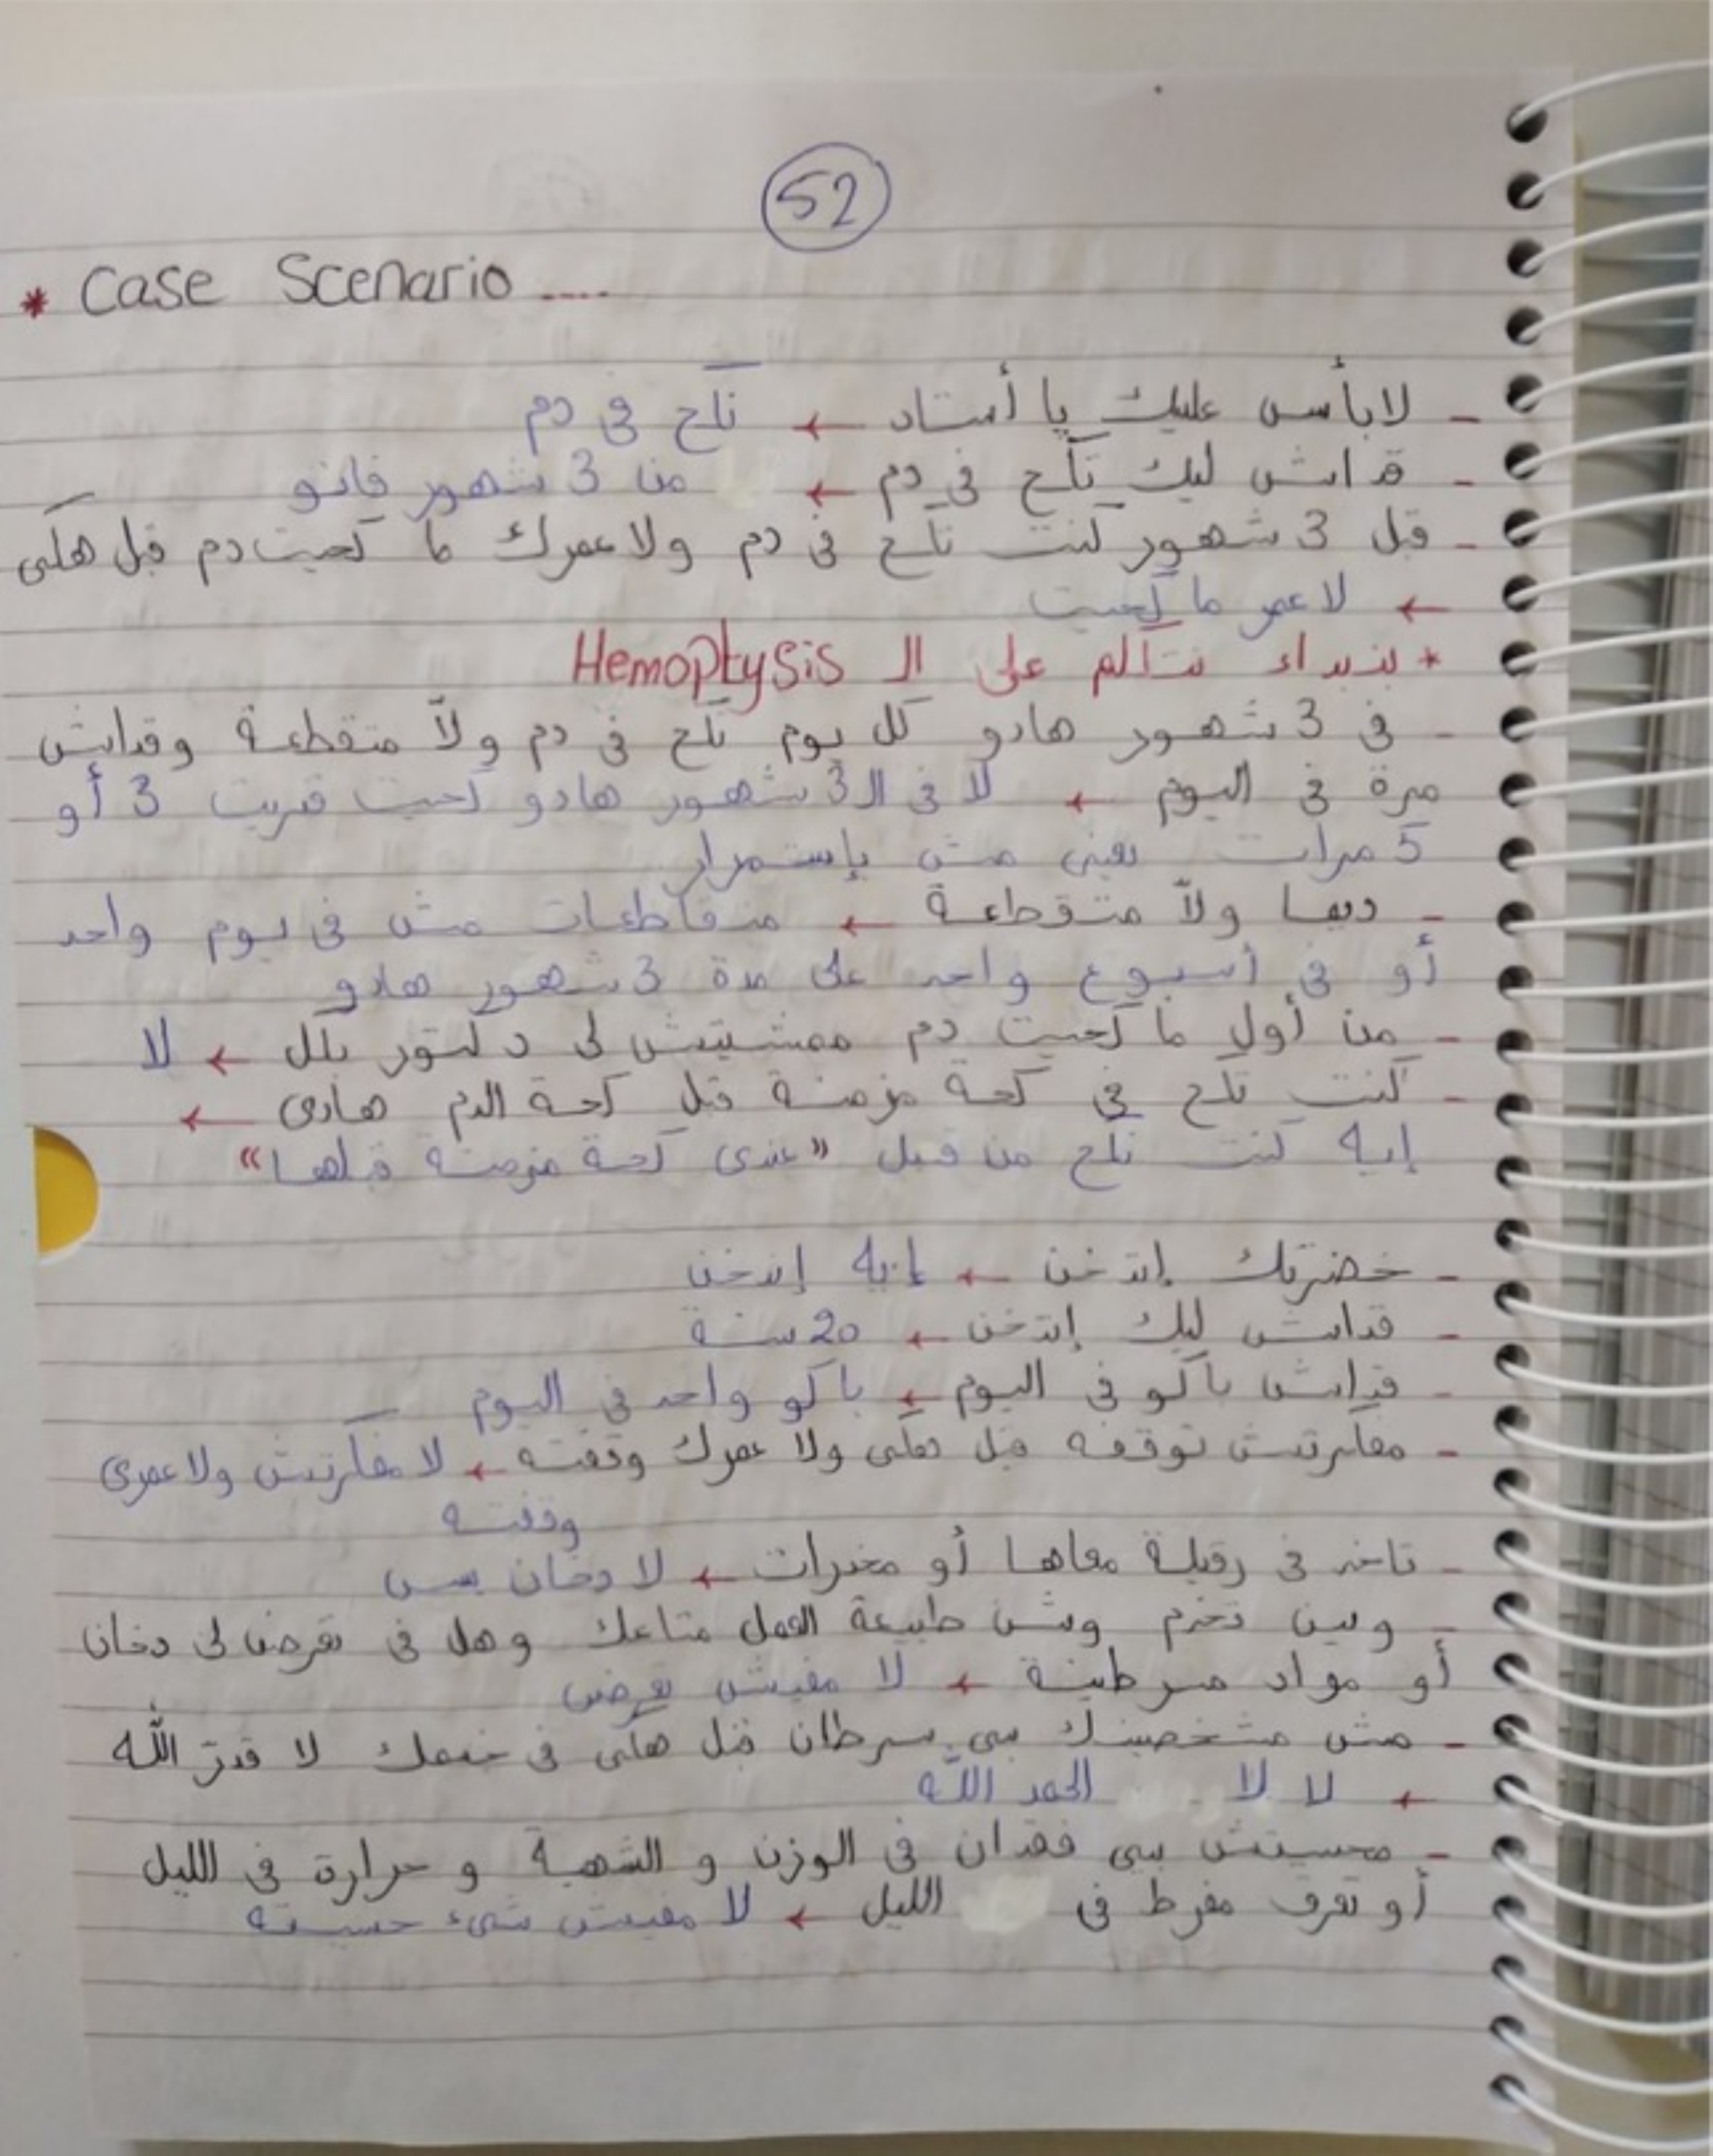 52
* Case Scenario ....
- لابأس عليك يا أستاد ← نكح في دم
- قداش ليك تكح في دم ← من 3 شهور فاتو
- قبل 3 شهور كنت تكح في دم ولا عمرك ما كحيت دم قبل هكي
← لا عمر ما كحيت
* بنبداء نتكلم على ال Hemoptysis
- في 3 شهور هادو كل يوم تكح في دم ولّا متقطعة وقداش
مرة في اليوم ← لا في ال 3 شهور هادو كحيت قريت 3 أو
5 مرات يعني مش بإستمرار
- ديما ولّا متقطعة ← متقاطعات مش في يوم واحد
أو في أسبوع واحد على مدة 3 شهور هادو
- من أول ما كحيت دم ممشيتش لى دكتور بكل ← لا
- كنت تكح في كحة مزمنة قبل كحة الدم هادى ←
إيه كنت نكح من قبل "عندى كحة مزمنة قبلها"
- حضرتك إتدخن ← إيه إندخن
- قداش ليك إتدخن ← 20 سنة
- قداش باكو في اليوم ← باكو واحد في اليوم
- مفكرتش توقفه قبل هكى ولا عمرك وقفته ← لا مفكرتش ولا عمرى
وقفته
- تاخد في رقيلة معاها أو مخدرات ← لا دخان بس
- وين تخدم وشن طبيعة العمل متاعك وهل في تعرض لى دخان
أو مواد مسرطنة ← لا مفيش تعرض
- مش مشخصينك بى سرطان قبل هكى في خدمك لا قدّر الله
← لا لا الحمد الله
- محسيتش بى فقدان في الوزن و الشهية و حرارة في الليل
أو تعرق مفرط في الليل ← لا مفيش شىء حسيته